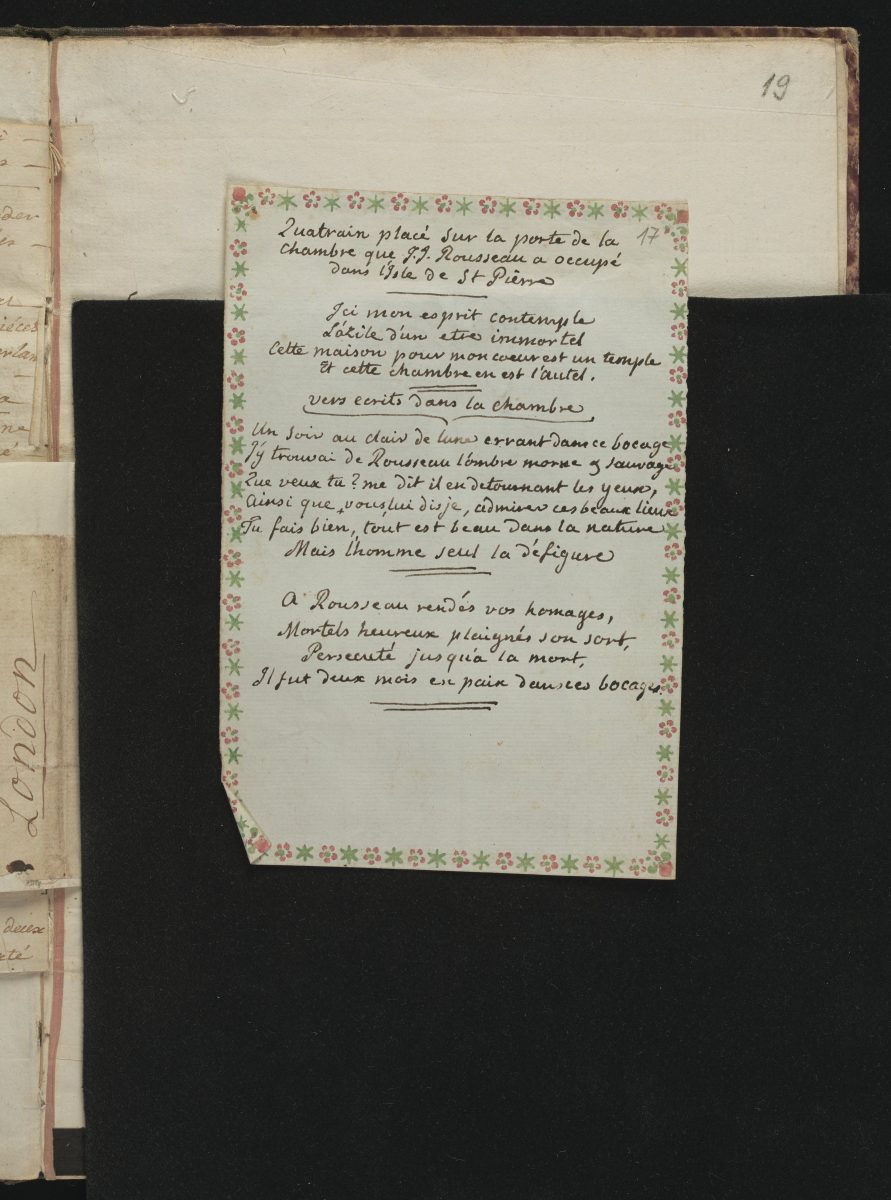 19
17
Quatrain placé sur la porte de la
chambre que J.J. Rousseau a occupé
dans l'Isle de St Pièrre
Ici mon esprit contemple
L'azile d'un etre immortel
Cette maison pour mon coeur est un temple
Et cette chambre en est l'autel.
vers ecrits dans la chambre
Un soir au clair de lune errant dans ce bocage
J'y trouvai de Rousseau l'ombre morne & sauvage
Que veux tu? me dit il en detournant les yeux,
Ainsi que vous lui dis je, admirer ces beaux lieux
Tu fais bien, tout est beau dans la nature
Mais l'homme seul la défigure
A Rousseau rendés vos homages,
Mortels heureux plaignés son sort,
Persecuté jusqu'a la mort,
Il fut deux mois en paix dans ces bocages.
London
deux